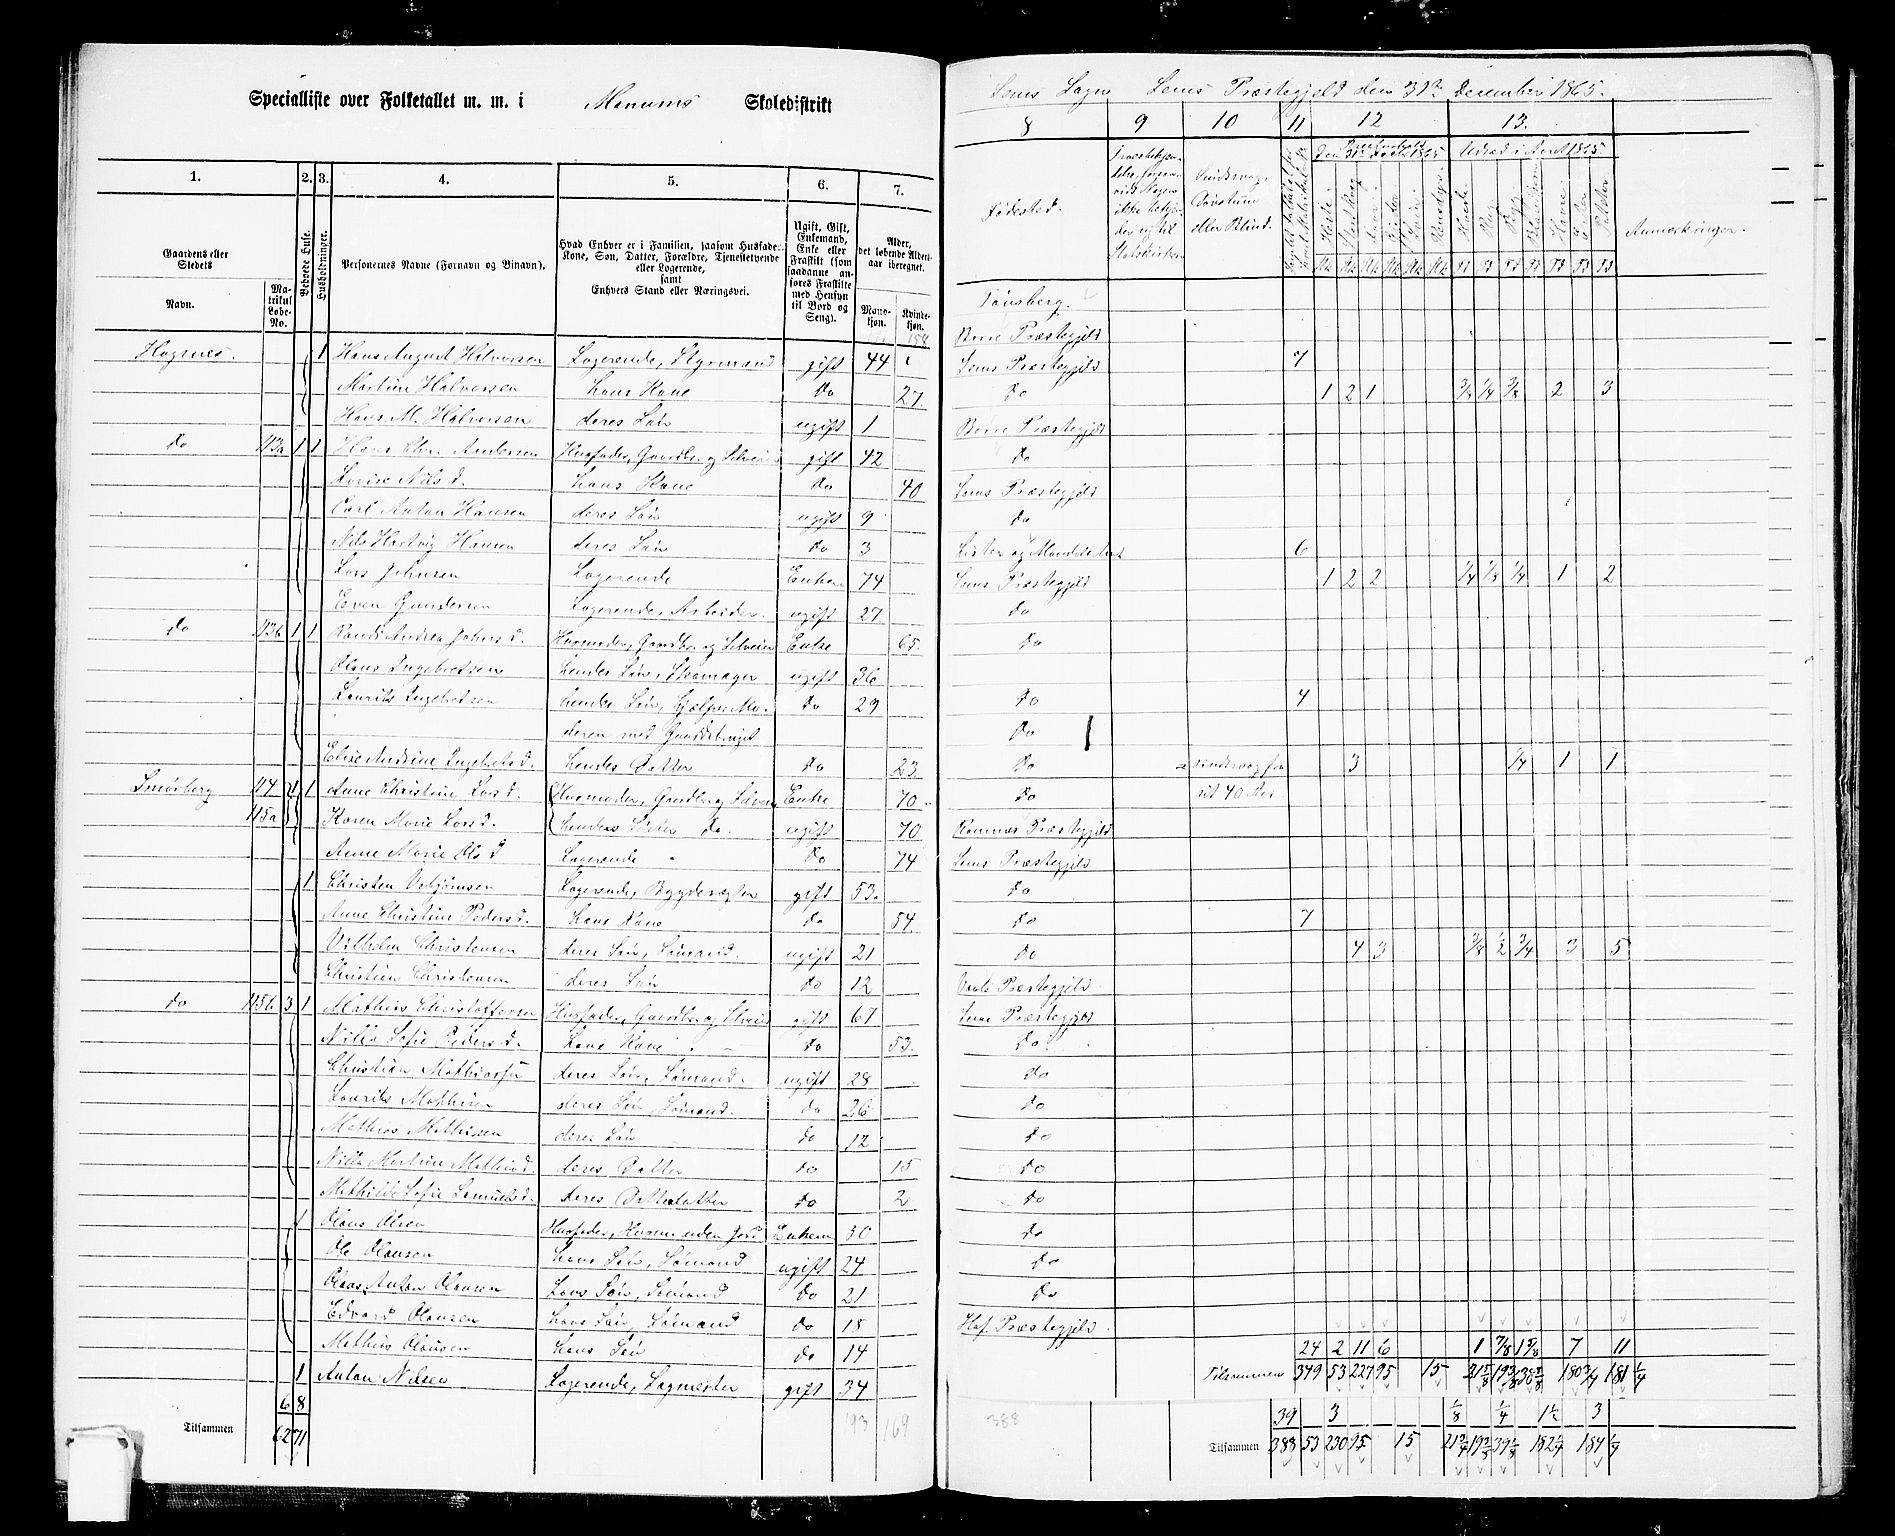 Specialliste over Folketallet m. m. i Manums Skoledistrikt
1. 2. 3. 4. 5. 6. 7.
Gaardens eller Stedets
Navn.
Matrikul Løbe-No.
Beboede Huse.
Husholdninger.
Personernes Navne (Fornavn og Binavn).
Hvad Enhver er i Familien, saasom Husfader, Kone, Søn, Datter, Forældre, Tjenestetyende eller Logerende, samt Enhvers Stand eller Næringsvei.
Ugift, Gift, Enkemand, Enke eller Fraskilt (som saadanne anføres Fraskilte med Hensyn til Bord og Seng).
Alder, det løbende Aldersaar iberegnet.
Mandkjøn.
Kvindekjøn.
158
Hognes. 1 Hans August Halvorsen Logerende, Styrmand gift 44
Martine Halvorsen hans Kone do 27.
Hans M. Halvorsen deres Søn ugift 1
do 113a 1 1 Hans Chr. Andersen Husfader, Gaardbr. og Selveier gift 42
Lovise Nilsd. hans Kone do 40
Carl Anton Hansen deres Søn ugift 9
Nils Hartvig Hansen deres Søn do 3
Lars Johnsen Logerende Enkem 74
Even Gundersen Logerende, Arbeider. ugift 27
do 113b 1 1 Randi Andrea Johnsd. Husmoder, Gaardbr. og Selveier Enke 65.
Olaus Ingebretsen hendes Søn, Skomager ugift 36
Laurits Ingebretsen hendes Søn, hjælper Moderen med Gaardsbruget do 29
Elise Andrine Ingeb.d. hendes Datter do 23.
Smørberg 114 2 1 Anne Christine Larsd. Husmoder, Gaardbr. og Selveier Enke 70
115a Karen Marie Larsd. hendes Søster do. ugift 70
Anne Marie Olsd Logerende do 74
1 Christen Logerende, gift 53.
Anne Christine Pedersd. hans Kone do 54.
Vilhelm Christensen deres Søn, Sømand. ugift 21
Christian Christensen deres Søn do 12
do 115b 3 1 Mathias Christoffersen Husfader, Gaardbr. og Selveier gift 67
Nilla Sofie Pedersd. hans Kone do 53.
Christian Mathiassen deres Søn, Sømand. ugift 28
Laurits Mathisen deres Søn Sømand. do 26
Mathias Mathisen deres Søn do 12
Nilla Martine Mathisd. deres Datter do 15
Mathilde Sofie Samuelsd. deres Datterdatter do 2
1 Olaus Olsen Husfader, Husm. uden Jord Enkem 50
Ole Olausen hans Søn, Sømand ugift 24
Olaus Anton Olausen hans Søn, Sømand do 21
Edvard Olausen hans Søn, Sømand do 18
Mathias Olausen hans Søn do 14
1 Anton Nilsen Logerende, Sagmester gift 34
6 8
Tilsammen 62 71 193 169
Sems Sogn Sems Præstegjeld den 31te December 1865.
8 9 10 11 12 13.
Fødested.
Sindssvag, Døvstum eller Blind.
Kreaturhold den 31te Decbr 1865
Udsæd i Aaret 1865.
Anmærkninger.
Tønsberg.
Borre Præstegjeld
Sems Præstegjeld 7
do 1 2 1 3/8 1/4 3/8 2 3
Borre Præstegjeld
do
Sems Præstegjeld
do
Lister og Mandals Amt 6
Sems Præstegjeld 1 2 2 1/4 1/8 1/4 1 2
do
do
do 4
do
do sindssvag fra 3 1/4 1 1
do sit 40 Aar
Ramnæs Præstegjeld
Sems Præstegjeld
do
do 7
do 4 3 3/8 1/2 3/4 3 5
Vaale Præstegjeld
Sems Præstegjeld
do
do
do
do
do
do
do
do
do
Hof Præstegjeld.
24 2 11 6 1 7/8 1 5/8 7 11
Tilsammen 349 53 227 95 15 21 5/8 19 3/8 38 5/8 180 3/4 181 1/4
39 3 1/8 1/4 1 1/2 3
388
Tilsammen 388 53 230 95 15 21 3/4 19 3/8 39 1/8 182 1/4 184 1/4